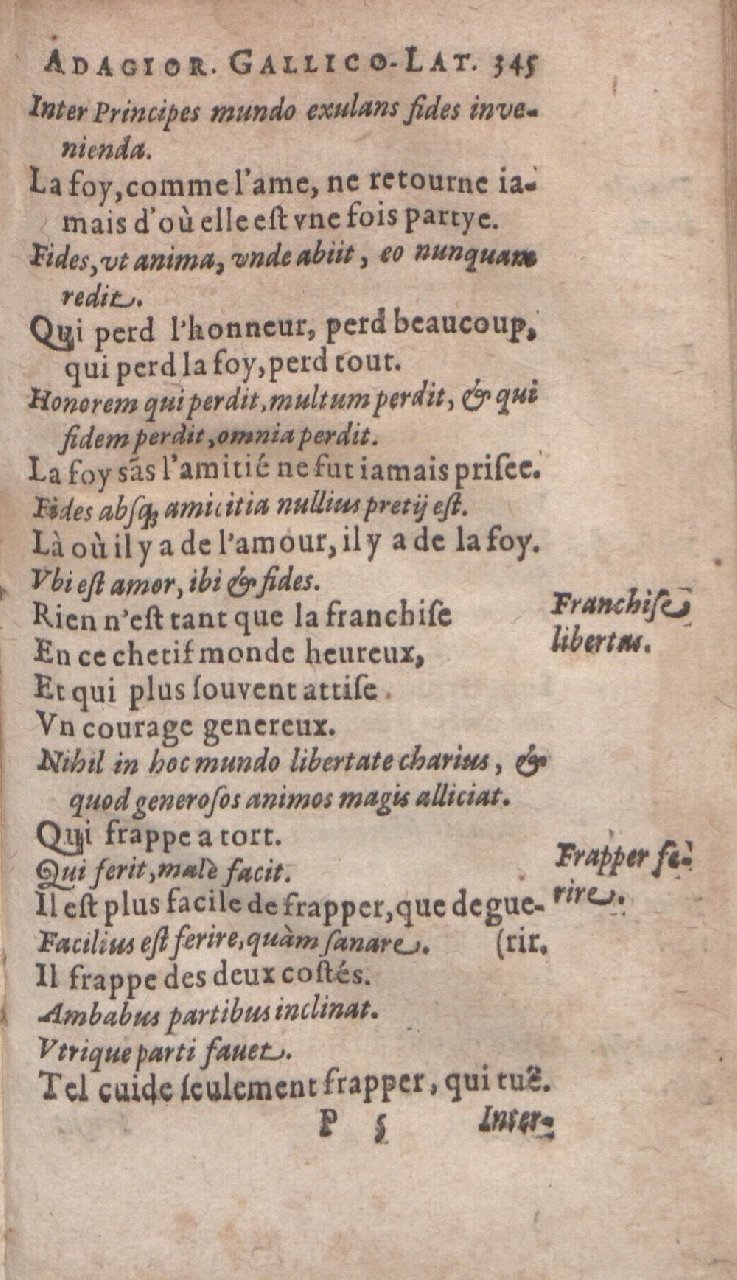 ADAGIOR. GALLICO-LAT. 345
Inter Principes mundo exulans fides inve-
nienda.
La foy, comme l'ame, ne retourne ia-
mais d'où elle eſt vne fois partye.
Fides, vt anima, vnde abiit, eo nunquam
redit.
Qui perd l'honneur, perd beaucoup,
qui perd la foy, perd tout.
Honorem qui perdit, multum perdit, & qui
fidem perdit, omnia perdit.
La foy sãs l'amitié ne fut iamais priſee.
Fides abſq; amicitia nullius pretij eſt.
Là où il y a de l'amour, il y a de la foy.
Vbi eſt amor, ibi & fides.
Rien n'eſt tant que la franchiſe
Franchiſe
En ce chetif monde heureux,
libertas.
Et qui plus ſouvent attiſe
Vn courage genereux.
Nihil in hoc mundo libertate charius, &
quod generoſos animos magis alliciat.
Qui frappe a tort.
Qui ferit, malè facit.
Frapper fe-
Il eſt plus facile de frapper, que de gue-
rire.
Facilius eſt ferire, quàm ſanare. (rir.
Il frappe des deux coſtés.
Ambabus partibus inclinat.
Vtrique parti favet.
Tel cuide ſeulement frapper, qui tuë.
P 5 Inter-